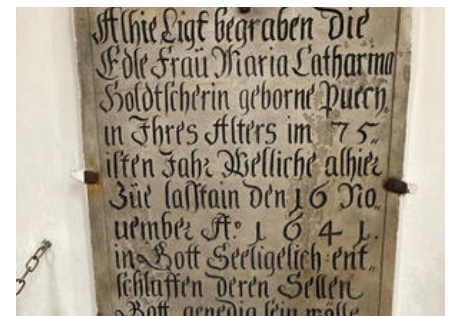 Alhie Ligt begraben Die
Edle Fraü Maria Catharina
Holdtscherin geborne Puech„
in Ihres Alters im 75„
isten Jahr Welliche alhier
Züe lasstain den 16 No„
uember A° 1641.
in Gott Seeligelich ent„
schlaffen deren Sellen
Gott genedig sein wölle